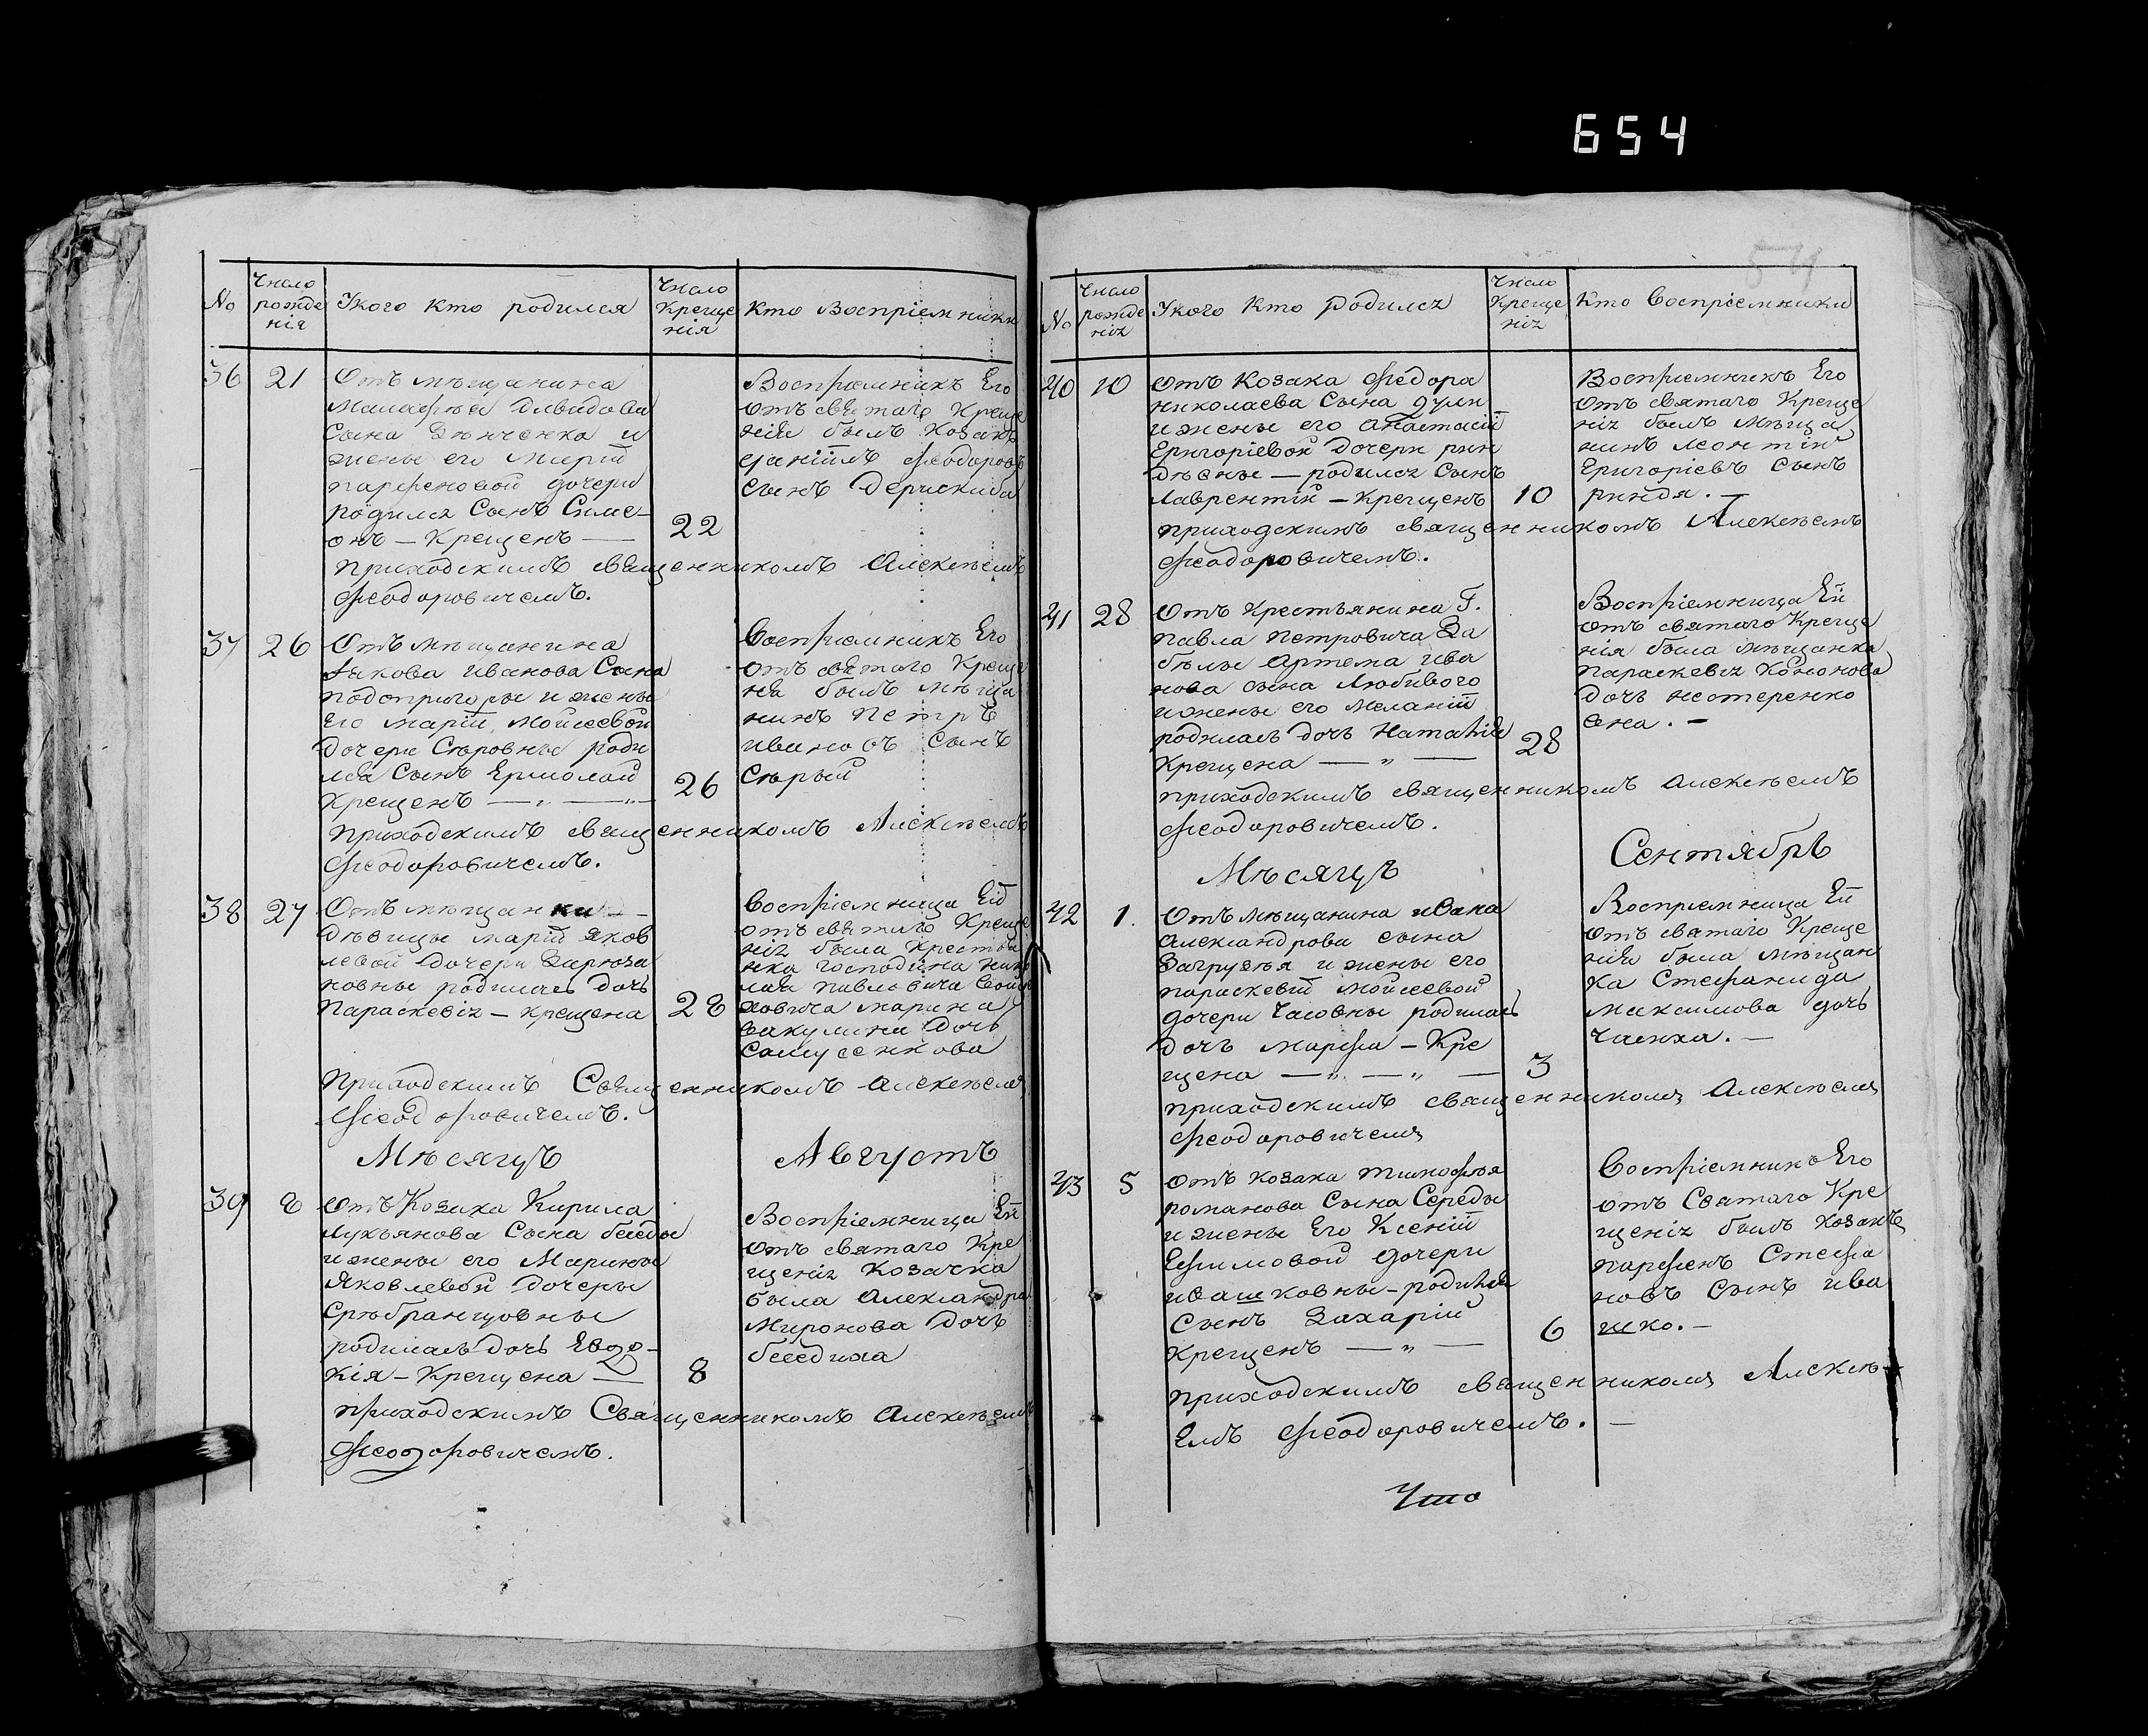 654
No
Число рожде нія
У кого кто родился
Число Креще нія
Кто Воспріемники
36
21
Отъ мѣщанина
Сына Зѣнченка и
жены его Маріи
парфеновой дочери
родился Сынъ Симе-
онъ - Крещенъ —
22
приходскимъ священникомъ Алексѣемъ
Ѳеодоровичемъ.
Воспріемникъ Его
отъ святаго Креще
нія былъ козакъ
Даніилъ Ѳеодоровъ
сынъ
37
26
Отъ мѣщанина
Якова Иванова Сына
подопригоры и жены
Его Маріи Мойсеевой
дочери Сѣровны роди
лся Сынъ Ермолай
Крещенъ — „ — „ —
26
приходскимъ священникомъ Алексѣемъ
Ѳеодоровичемъ.
Воспріемникъ Его
отъ святаго Креще
нія былъ мѣща
нинъ Петръ
ивановъ сынъ
Сѣрый
38
27
Отъ мѣщанки —
дѣвицы Маріи Яков
левой дочери
новны родилась дочь
Параскевія - крещена
28
Приходскимъ Священникомъ Алексѣемъ
Ѳеодоровичемъ.
Воспріемница Ей
отъ святаго Креще
нія была Крестья
нка господина Нико
лая Павловича
марина
вакулина дочь
Самусенкова
Мѣсяцъ Августъ
39
8
Отъ Козака Кирила
Лукьянова Сына беседы
и жены его Марины
Яковлевой дочеры
Сребранцовны
родилась дочь Евдо-
кія - Крещена —
8
приходскимъ Священникомъ Алексѣемъ
Ѳеодоровичемъ.
Воспріемница Ей
отъ святаго Кре
щенія Козачка
была Александра
Миронова дочь
беседина
No
Число рожде нія
У кого кто родился
Число Креще нія
Кто Воспріемники
40
10
Отъ Козака Ѳедора
николаева Сына
и жены его Анастасіи
Григоріевой дочери рин
дѣвны — родился Сынъ
Лаврентій - Крещенъ
10
приходскимъ священникомъ Алексѣемъ
Ѳеодоровичемъ.
Воспріемникъ Его
отъ святаго Креще
нія былъ Мѣща
нинъ Леонтій
Григоріевъ Сынъ
риндя. —
41
28
Отъ Крестьянина Г.
павла петровича За
бѣлы Артема ива
нова сына Любивого
и жены его Меланіи
родилась дочь Наталія
Крещена — „ —
28
приходскимъ священникомъ Алексѣемъ
Ѳеодоровичемъ.
Воспріемница Ей
отъ святаго Креще
нія была мѣщанка
параскевія Кононова
дочь нестеренко
вна. —
Мѣсяцъ Сентябрь
42
1.
Отъ мѣщанина ивана
Александрова сына
Загрузья и жены его
параскевіи Мойсеевой
дочери Чаовны родилась
дочь Марфа - Кре
щена — „ — „ —
3
приходскимъ священникомъ Алексѣемъ
Ѳеодоровичемъ
Воспріемница Ей
отъ святаго Креще
нія была мѣщан
ка Стефанида
Максимова дочь
Чаенка. —
43
5
Отъ козака Тимофѣя
романова Сына Середы
и жены Его Ксеніи
Ефимовой дочери
ивашковны - родился
Сынъ Захарій
крещенъ — „ —
6
приходскимъ священникомъ Алексѣ-
Емъ Ѳеодоровичемъ. —
Воспріемникъ Его
отъ Святаго Кре
щенія былъ козакъ
парфенъ Стефа
новъ сынъ ива
шко. —
Что